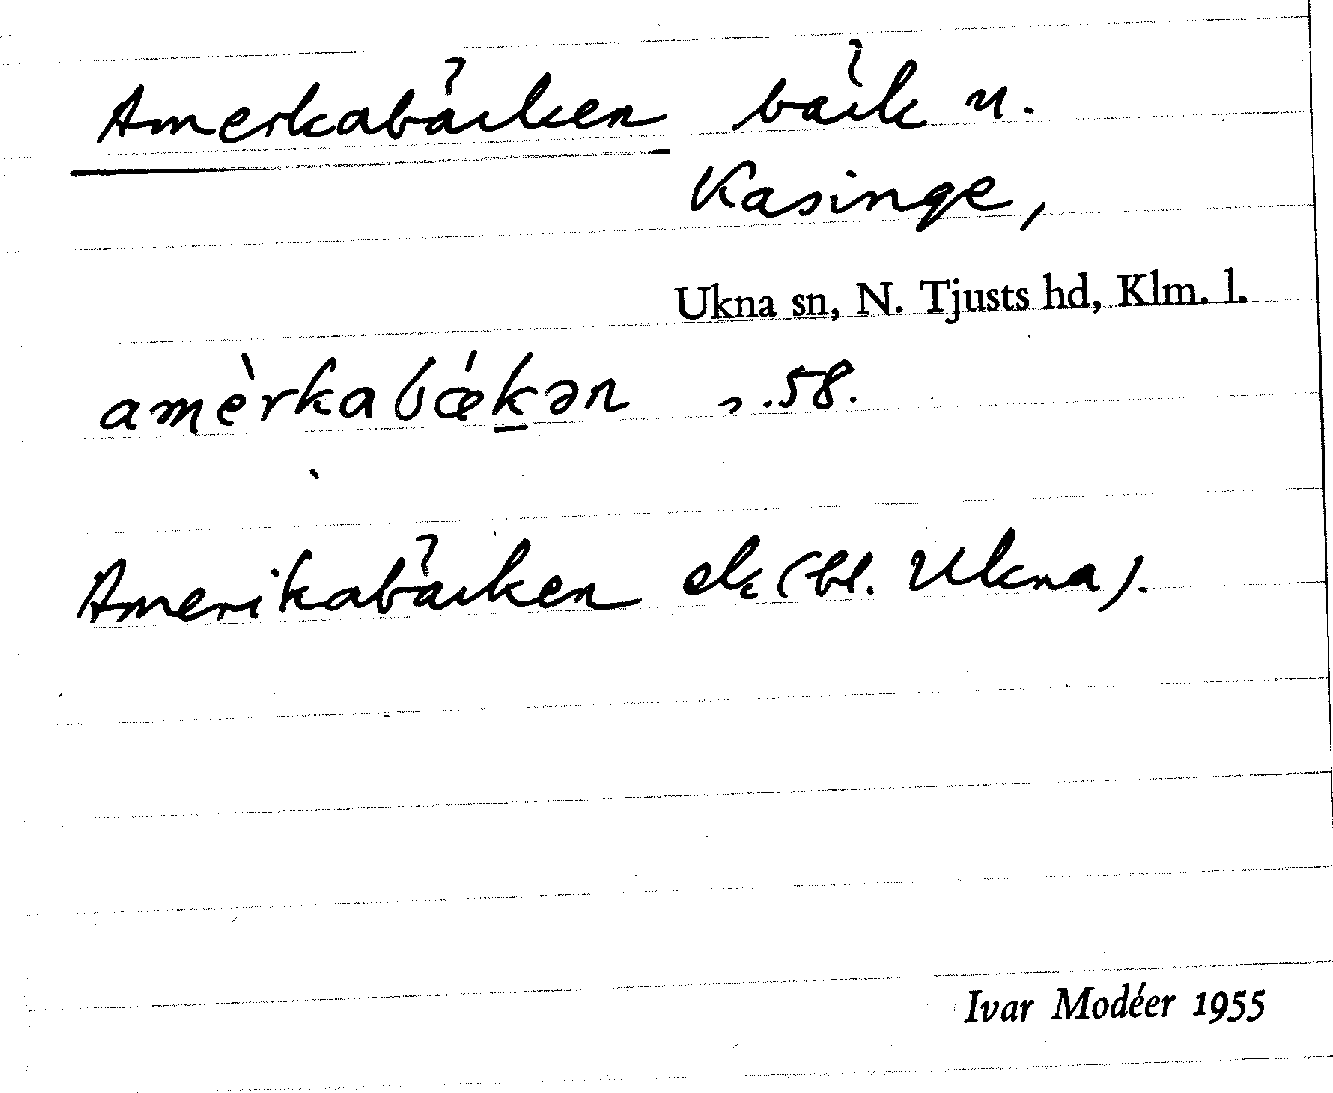 Amerkabäcken bäck n.
Kasinge,
Ukna sn, N. Tjusts hd, Klm. l.
amèrkabǽkən .58.
Amerikabäcken ek (bl. Ukna).
Ivar Modéer 1955